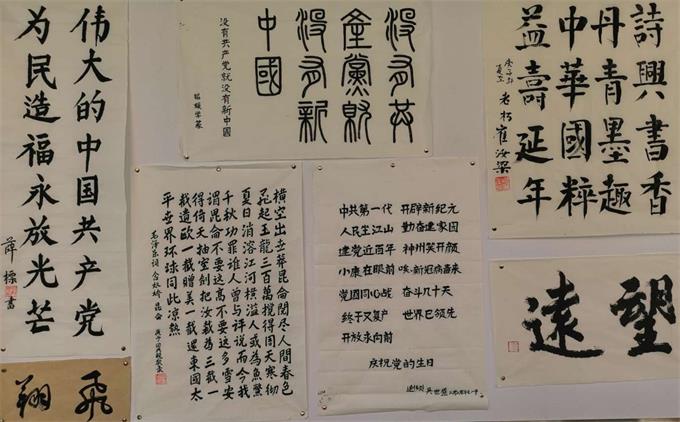 伟大的中国共产党
为民造福永放光芒
薛標书
没有共
產黨就
没有新
中國
没有共产党就没有新中國
詩興書香
丹青墨趣
中華國粹
益壽延年
庚子年
夏至
老朽崔汝梁
横空出世莽昆侖閲尽人間春色
飛起玉龍三百萬攪得周天寒彻
夏日消溶江河横溢人或為魚鱉
千秋功罪谁人曾与评说而今我
謂昆侖不要这高不要这多雪安
得倚天抽宝劍把汝裁為三截一
截遗欧一截赠美一截还東國太
平世界环球同此凉熱
毛泽东词念奴娇昆侖
中共第一代 开辟新纪元
人民坐江山 勤奋建家园
建党近百年 神州笑开颜
小康在眼前 咳·新冠病毒来
党国同心战 奋斗几十天
终于又复产 世界已领先
开放永向前
庆祝党的生日
吴世盛
望遠
飛翔